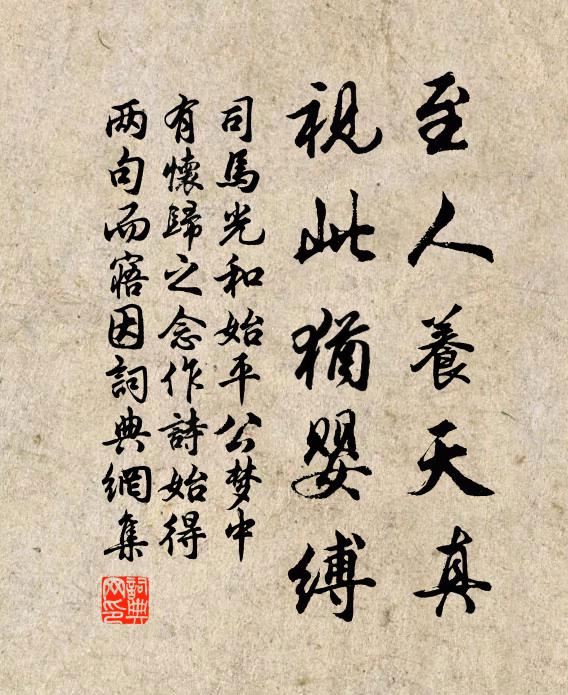 至人養天真
視此猶嬰縛
司馬光和始平公梦中
有懷歸之念作詩始得
两句而寤因詞典網集
詞典网印